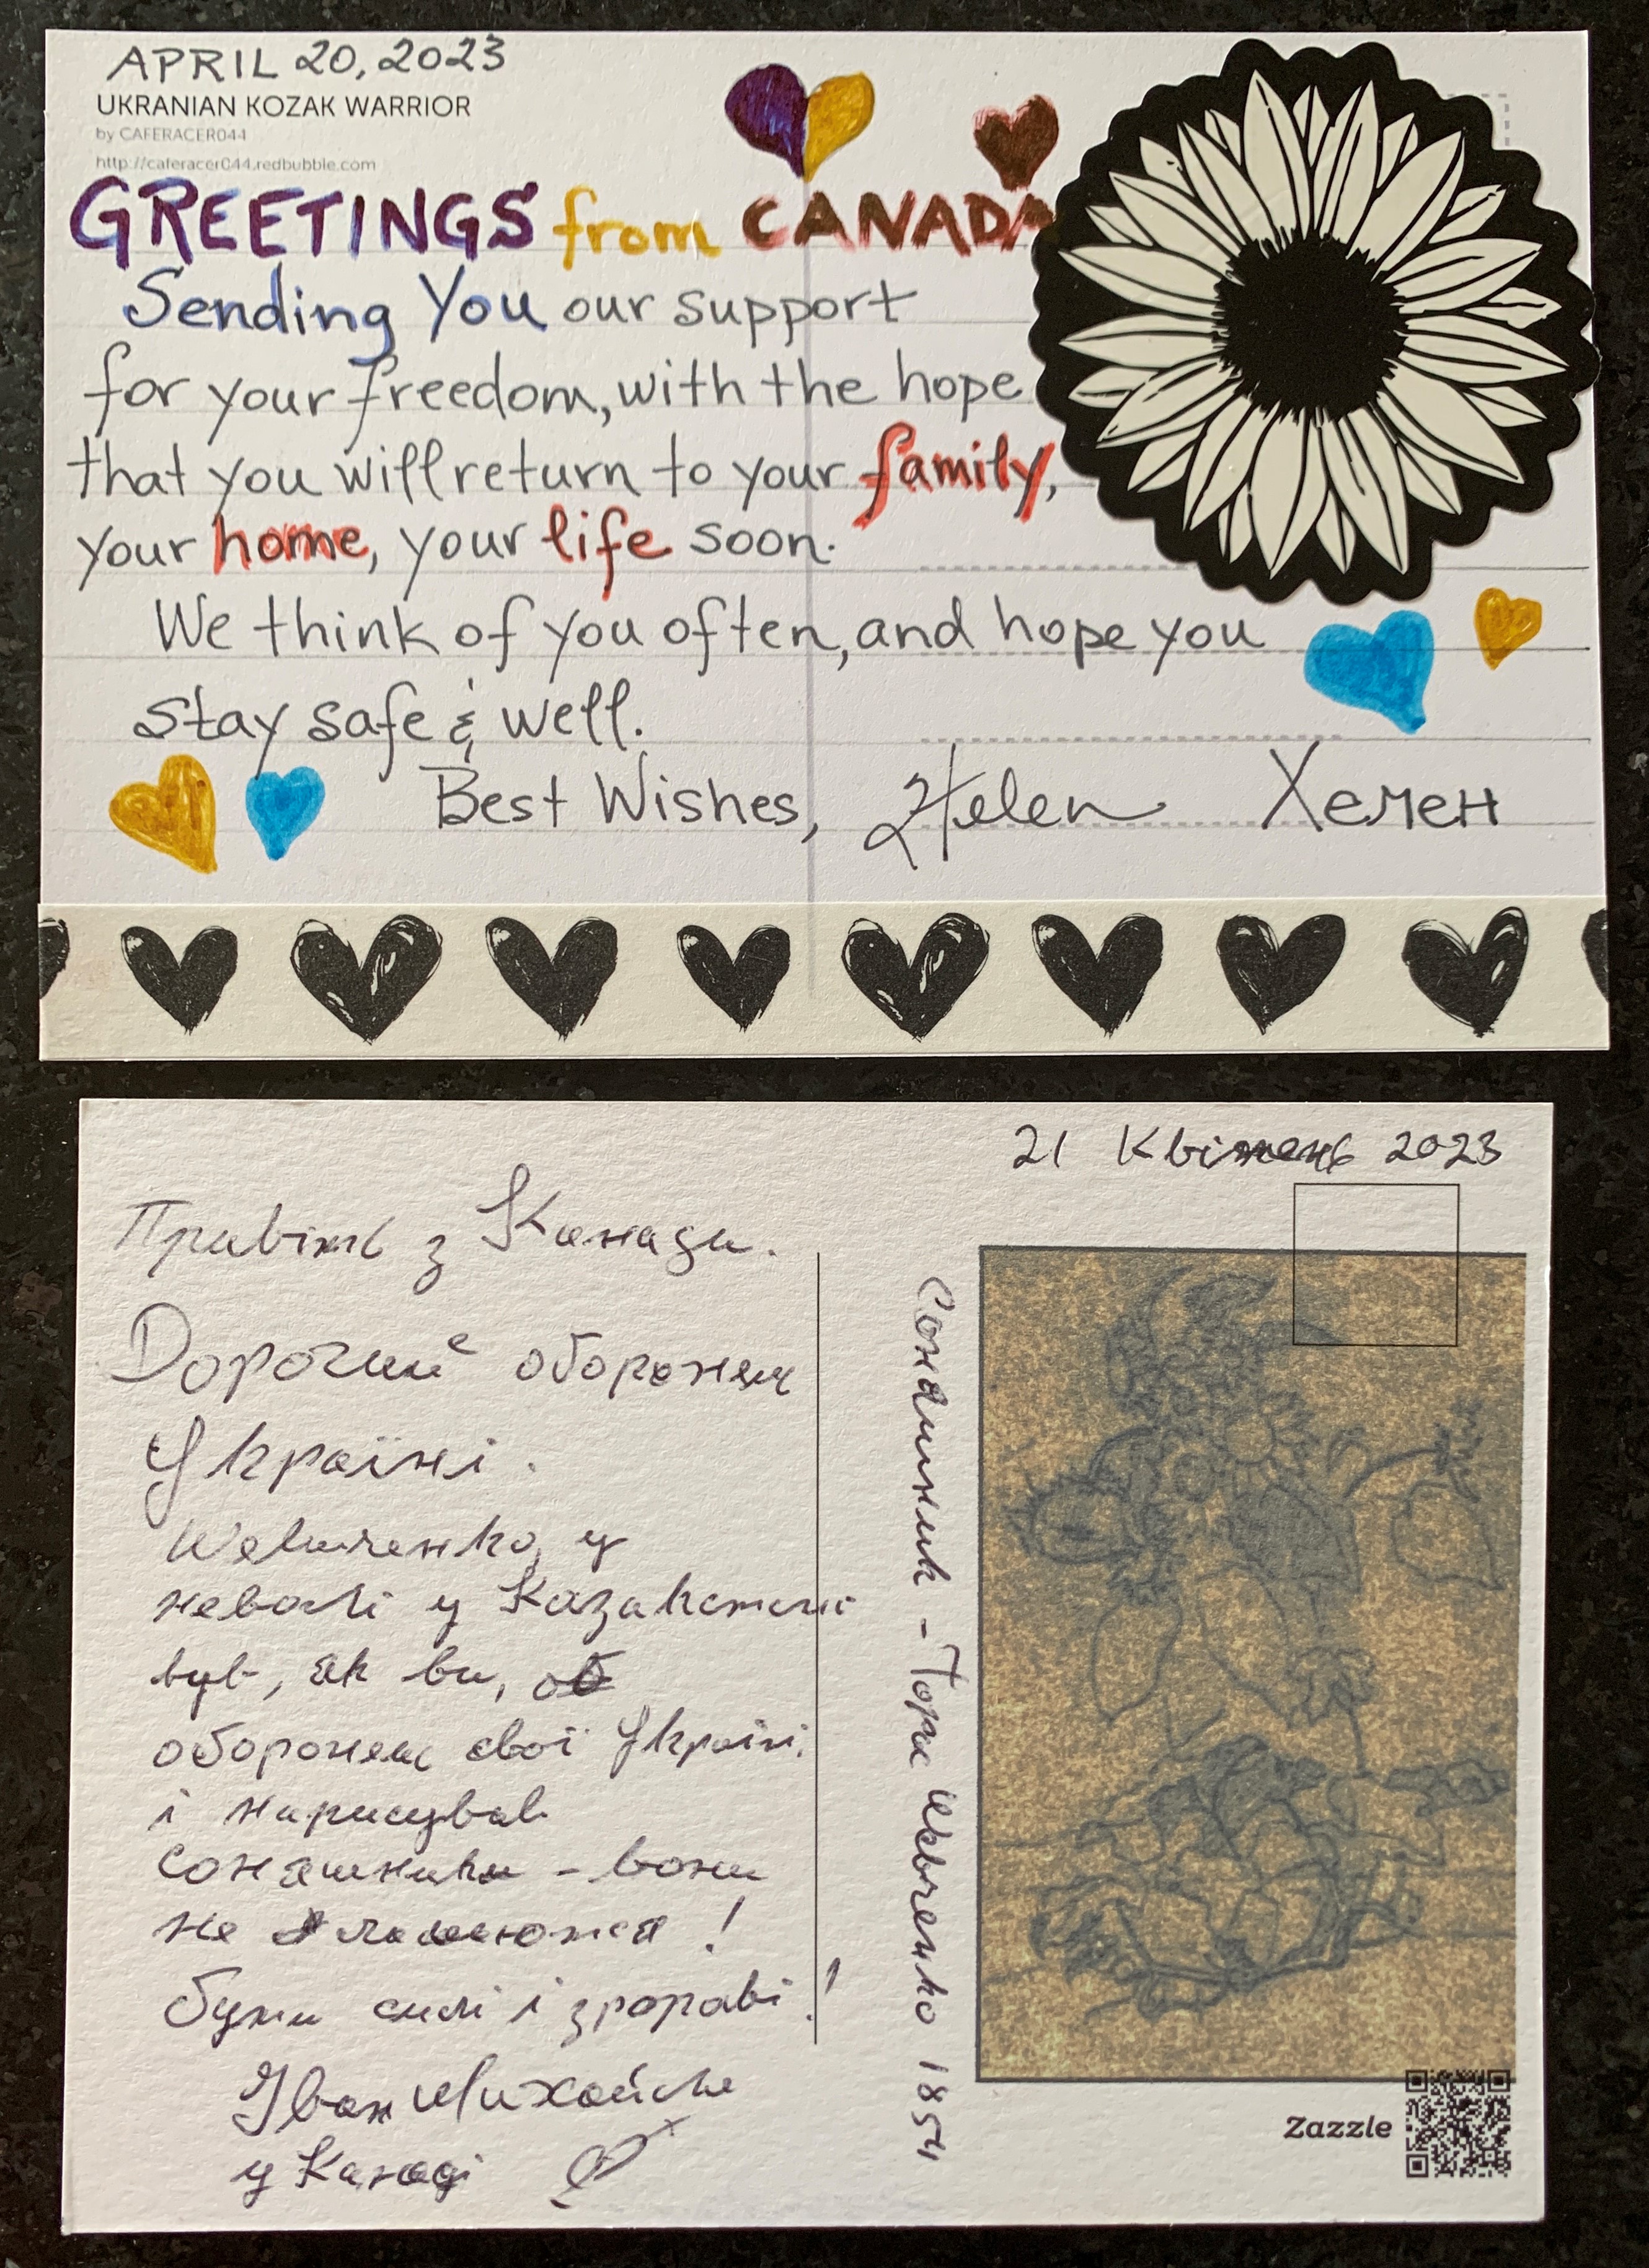 APRIL 20, 2023
UKRANIAN KOZAK WARRIOR
by CAFERACER044
http://caferacer044.redbubble.com
GREETINGS from CANADA
Sending You our support
for your freedom, with the hope
that you will return to your family,
your home, your life soon.
We think of you often, and hope you
stay safe & well.
Best Wishes, Helen Хелен
21 Квітень 2023
Привіть з Канади.
Дорогий оборонец
Україні.
Шевченко, у
неволі у Казахстані
був, як ви,
оборонец свої Україні.
і нарисував
соняшники - вони
не
Бути силі і здораві!
Іван
у Канаді
Соняшник - Тарас Шевченко 1854
Zazzle